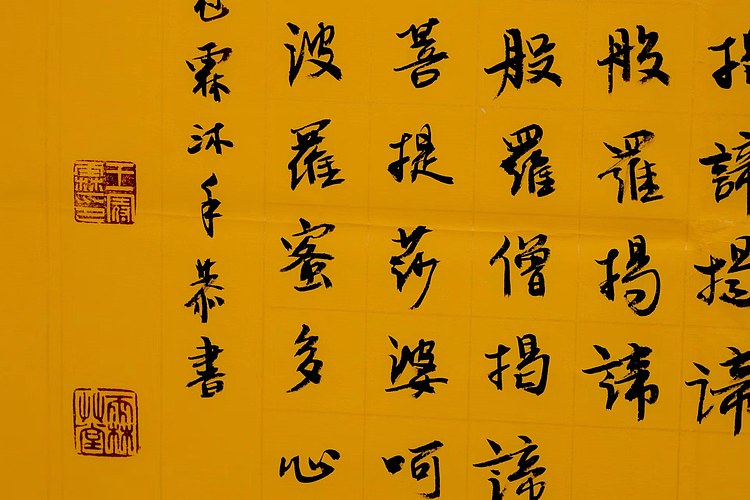 揭諦揭諦
般羅揭諦
般羅僧揭諦
菩提莎婆呵
波羅蜜多心
霖沐手恭書
雨林艸堂